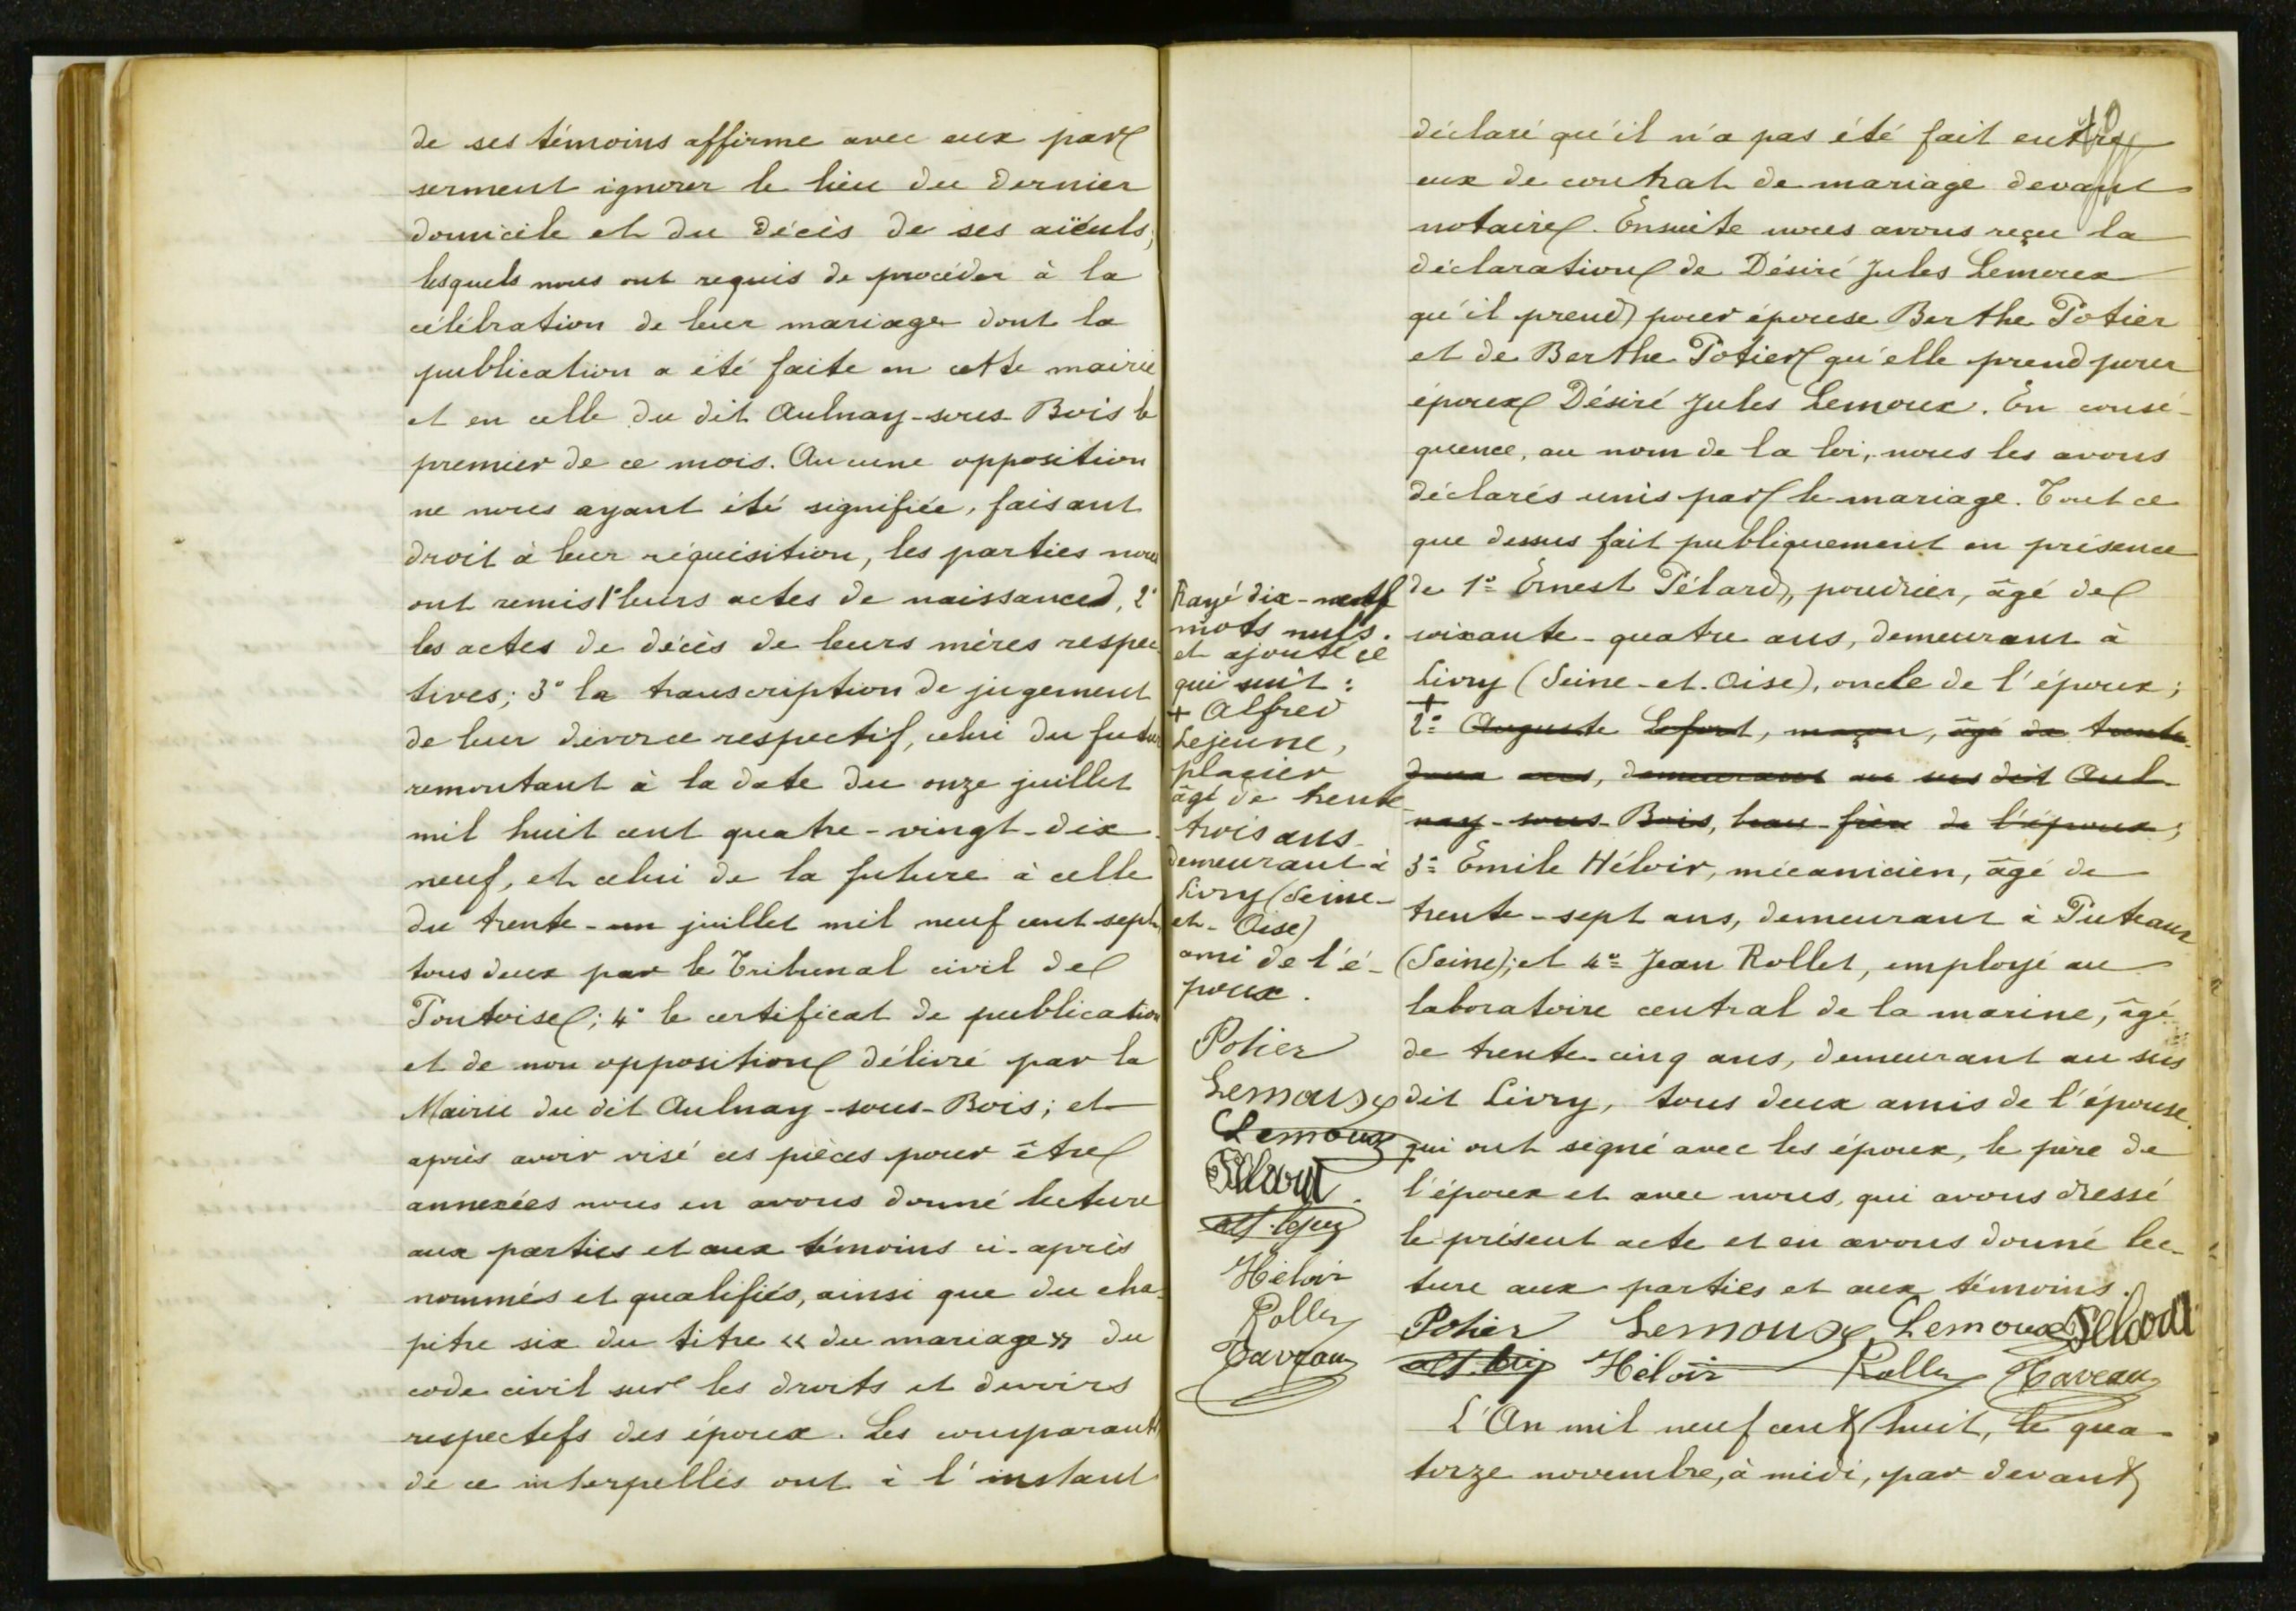 de ses témoins affirme avec eux par
serment ignorer le lieu du dernier
domicile et du décès de ses aïeuls;
lesquels nous ont requis de procéder à la
célébration de leur mariage dont la
publication a été faite en cette mairie
et en celle du dit Aulnay-sous-Bois le
premier de ce mois. Aucune opposition
ne nous ayant été signifiée, faisant
droit à leur réquisition, les parties nous
ont remis 1° leurs actes de naissances, 2°
les actes de décès de leurs mères respec
tives; 3° la transcription de jugement
de leur divorce respectif, celui du futur
remontant à la date du onze juillet
mil huit cent quatre-vingt-dix-
neuf, et celui de la future à celle
du trente-un juillet mil neuf cent sept,
tous deux par le Tribunal civil de
Pontoise; 4° le certificat de publication
et de non opposition délivré par la
Mairie du dit Aulnay-sous-Bois; et
après avoir visé ces pièces pour être
annexées nous en avons donné lecture
aux parties et aux témoins ci-après
nommés et qualifiés, ainsi que du cha-
pitre six du titre « du mariage » du
code civil sur les droits et devoirs
respectifs des époux. Les comparants
de ce interpellés ont à l'instant
Rayé dix-neuf
mots nuls.
et ajouté ce
qui suit :
+ Alfred
Lejeune,
plagier
âgé de trente-
trois ans
demeurant à
Livry (Seine-
et-Oise)
ami de l'é-
poux.
Potier
Lemoux
Lemoux
Pélard
Héloir
Rollet
Taveau
déclaré qu'il n'a pas été fait entre
eux de contrat de mariage devant
notaire. Ensuite nous avons reçu la
déclaration de Désiré Jules Lemoux
qu'il prend pour épouse Berthe Potier
et de Berthe Potier qu'elle prend pour
époux Désiré Jules Lemoux. En consé-
quence, au nom de la loi, nous les avons
déclarés unis par le mariage. Tout ce
que dessus fait publiquement en présence
de 1° Ernest Pélard, poudrier, âgé de
soixante-quatre ans, demeurant à
Livry (Seine-et-Oise), oncle de l'époux;
+
2° Auguste Lefort, maçon, âgé de trente-
deux ans, demeurant au sus dit Aul-
nay-sous-Bois, beau-frère de l'époux;
3° Emile Héloir, mécanicien, âgé de
trente-sept ans, demeurant à Puteaux
(Seine); et 4° Jean Rollet, employé au
laboratoire central de la marine, âgé
de trente-cinq ans, demeurant au sus
dit Livry, tous deux amis de l'épouse.
qui ont signé avec les époux, le père de
l'époux et avec nous, qui avons dressé
le présent acte et en avons donné lec-
ture aux parties et aux témoins.
Potier Lemoux Lemoux Pélard
Héloir Rollet Taveau
L'An mil neuf cent huit, le qua-
torze novembre, à midi, par devant